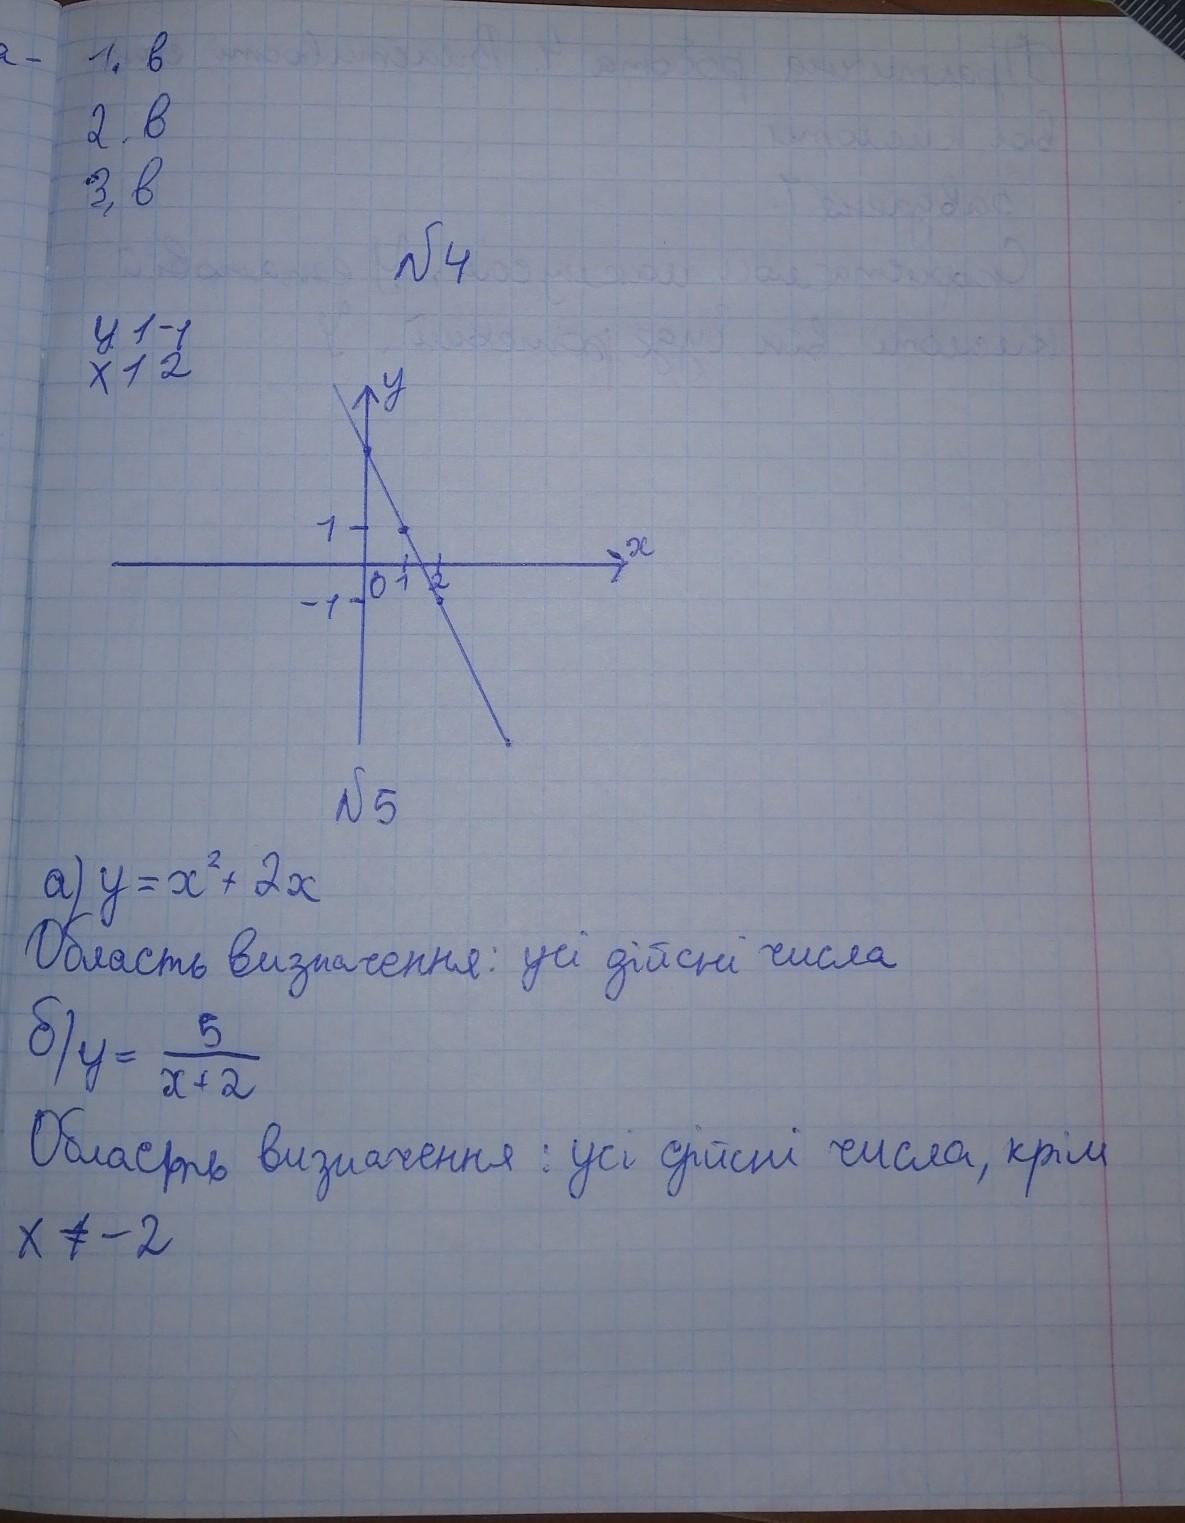 1. в
2. в
3. в
№4
у 1 -1
х 1 2
у
1
х
0 1 2
-1
№5
а) y = x² + 2x
Область визначення: усі дійсні числа
б) y = 5/(x+2)
Область визначення: усі дійсні числа, крім
x ≠ -2